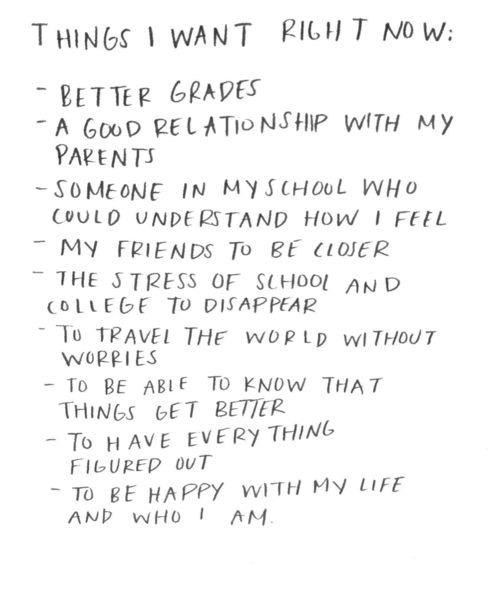 THINGS I WANT RIGHT NOW:
- BETTER GRADES
- A GOOD RELATIONSHIP WITH MY
PARENTS
- SOMEONE IN MY SCHOOL WHO
COULD UNDERSTAND HOW I FEEL
- MY FRIENDS TO BE CLOSER
- THE STRESS OF SCHOOL AND
COLLEGE TO DISAPPEAR
- TO TRAVEL THE WORLD WITHOUT
WORRIES
- TO BE ABLE TO KNOW THAT
THINGS GET BETTER
- TO HAVE EVERYTHING
FIGURED OUT
- TO BE HAPPY WITH MY LIFE
AND WHO I AM.